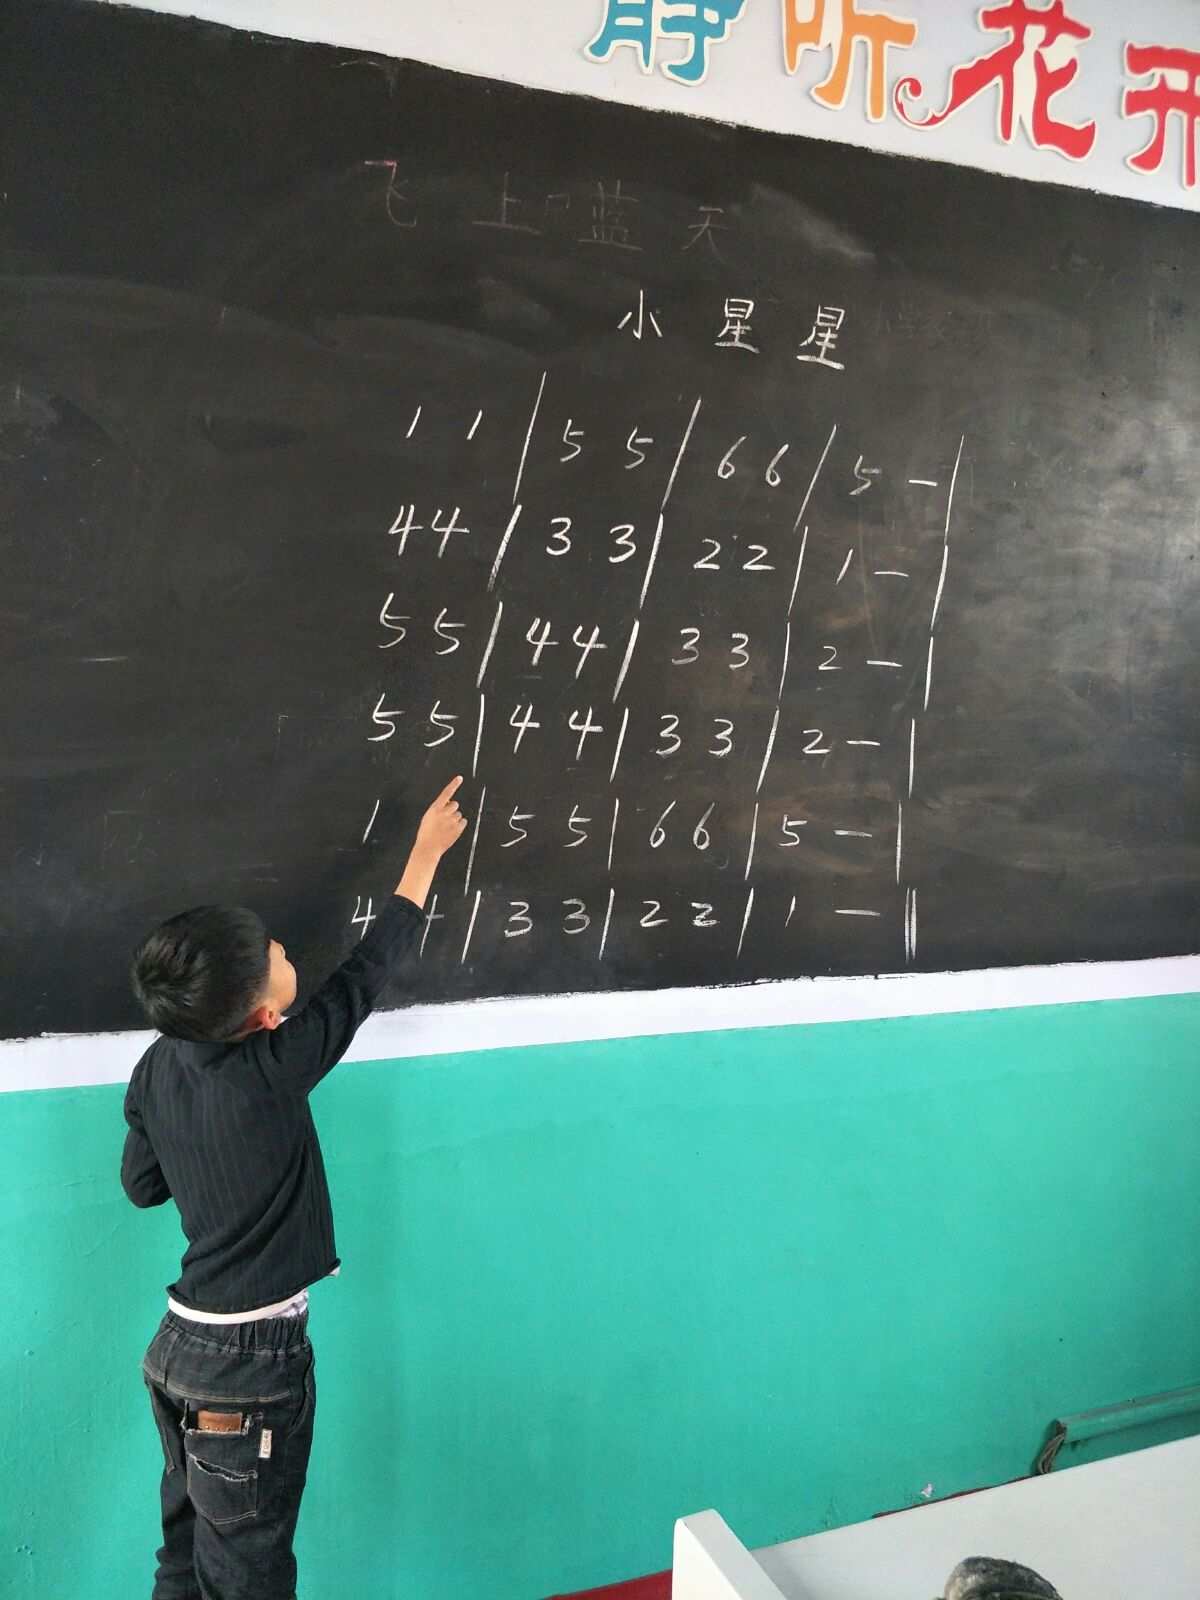 静听花开
飞上蓝天
小星星
1 1 | 5 5 | 6 6 | 5 — |
4 4 | 3 3 | 2 2 | 1 — |
5 5 | 4 4 | 3 3 | 2 — |
5 5 | 4 4 | 3 3 | 2 — |
1 | 5 5 | 6 6 | 5 — |
4 4 | 3 3 | 2 2 | 1 — ‖